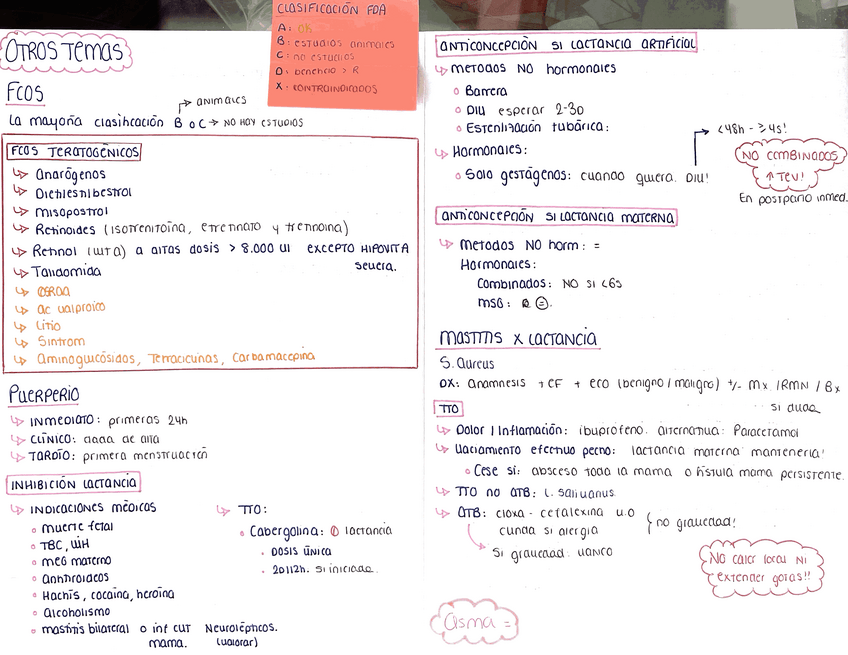 CLASIFICACIÓN FDA
A: OK
B: estudios animales
C: no estudios
D: beneficio > R
X: contraindicados
OTROS TEMAS
FCOS
→ animales
La mayoría clasificación B o C → NO HAY ESTUDIOS
FCOS TERATOGÉNICOS
↳ Andrógenos
↳ Dietilestilbestrol
↳ Misopostrol
↳ Retinoides (isotretitoína, etretinato y tretinoina)
↳ Retinol (vit A) a altas dosis > 8.000 UI EXCEPTO HIPOVITA
severa.
↳ Talidomida
↳ ac valproico
↳ Litio
↳ Sintrom
↳ Aminoglucósidos, Tetraciclinas, Carbamacepina
PUERPERIO
↳ INMEDIATO: primeras 24h
↳ CLÍNICO: hasta alta
↳ TARDÍO: primera menstruación
INHIBICIÓN LACTANCIA
↳ INDICACIONES MÉDICAS
○ Muerte fetal
○ TBC, VIH
○ MEG materno
○ Antitiroideos
○ Hachís, cocaína, heroína
○ Alcoholismo
○ mastitis bilateral o inf CUT
mama.
Neurolépticos.
(valorar)
↳ TTO:
○ Cabergolina: lactancia
• DOSIS ÚNICA
• 20 12h. si iniciada.
ANTICONCEPCIÓN SI LACTANCIA ARTIFICIAL
↳ Metodos NO hormonales
○ Barrera
○ DIU esperar 2-3
○ Esterilización tubárica:
→ <48h - ≥4s!
↳ Hormonales:
○ Solo gestágenos: cuando quiera. DIU!
NO COMBINADOS
↑ TEV!
En postparto inmed.
ANTICONCEPCIÓN SI LACTANCIA MATERNA
↳ Metodos NO horm: =
Hormonales:
Combinados: NO SI <6s
MSG: =
MASTITIS X LACTANCIA
S. Aureus
DX: Anamnesis + CF + eco (benigno/maligno) +/- Mx /RMN / Bx
si duda
TTO
↳ Dolor / Inflamación: ibuprofeno. alternativa: Paracetamol
↳ Vaciamiento efectivo pecho: lactancia materna mantenerla!
○ Cese si: absceso toda la mama o fístula mama persistente.
↳ TTO no ATB: L. salivarius
↳ ATB: cloxa - cefalexina v.o
cunda si alergia
} no gravedad!
↳ Si gravedad: vanco
No calor local ni
extender gotas!!
Asma =